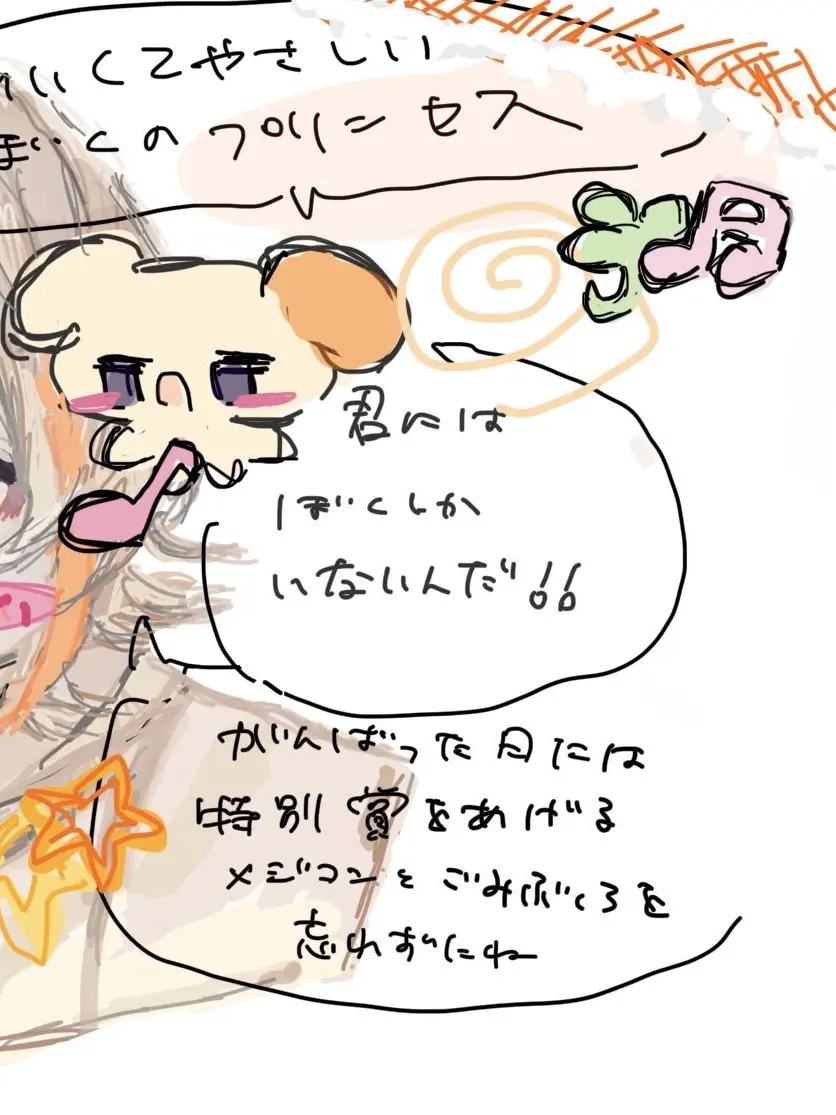 いくてやさしい
ぼくのプリンセス
君には
ぼくしか
いないんだ!!
がんばった日には
特別賞をあげる
メジコンとごみぶくろを
忘れずにね